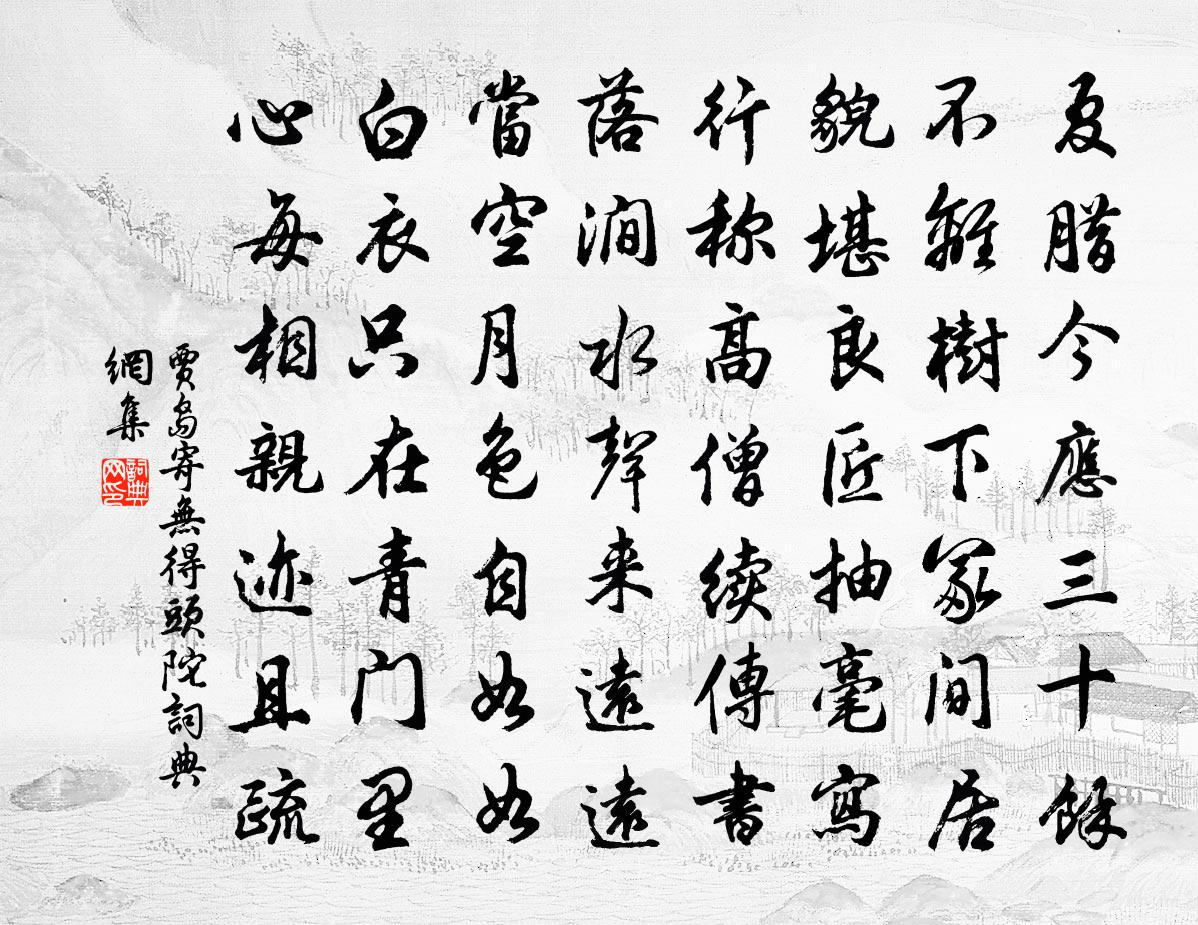 夏腊今應三十餘
不離樹下冢间居
貌堪良匠抽毫寫
行称高僧续傳書
落澗水聲来遠遠
當空月色自如如
白衣只在青门里
心每相親迹且疏
賈島寄無得頭陀詞典
網集
詞典网印